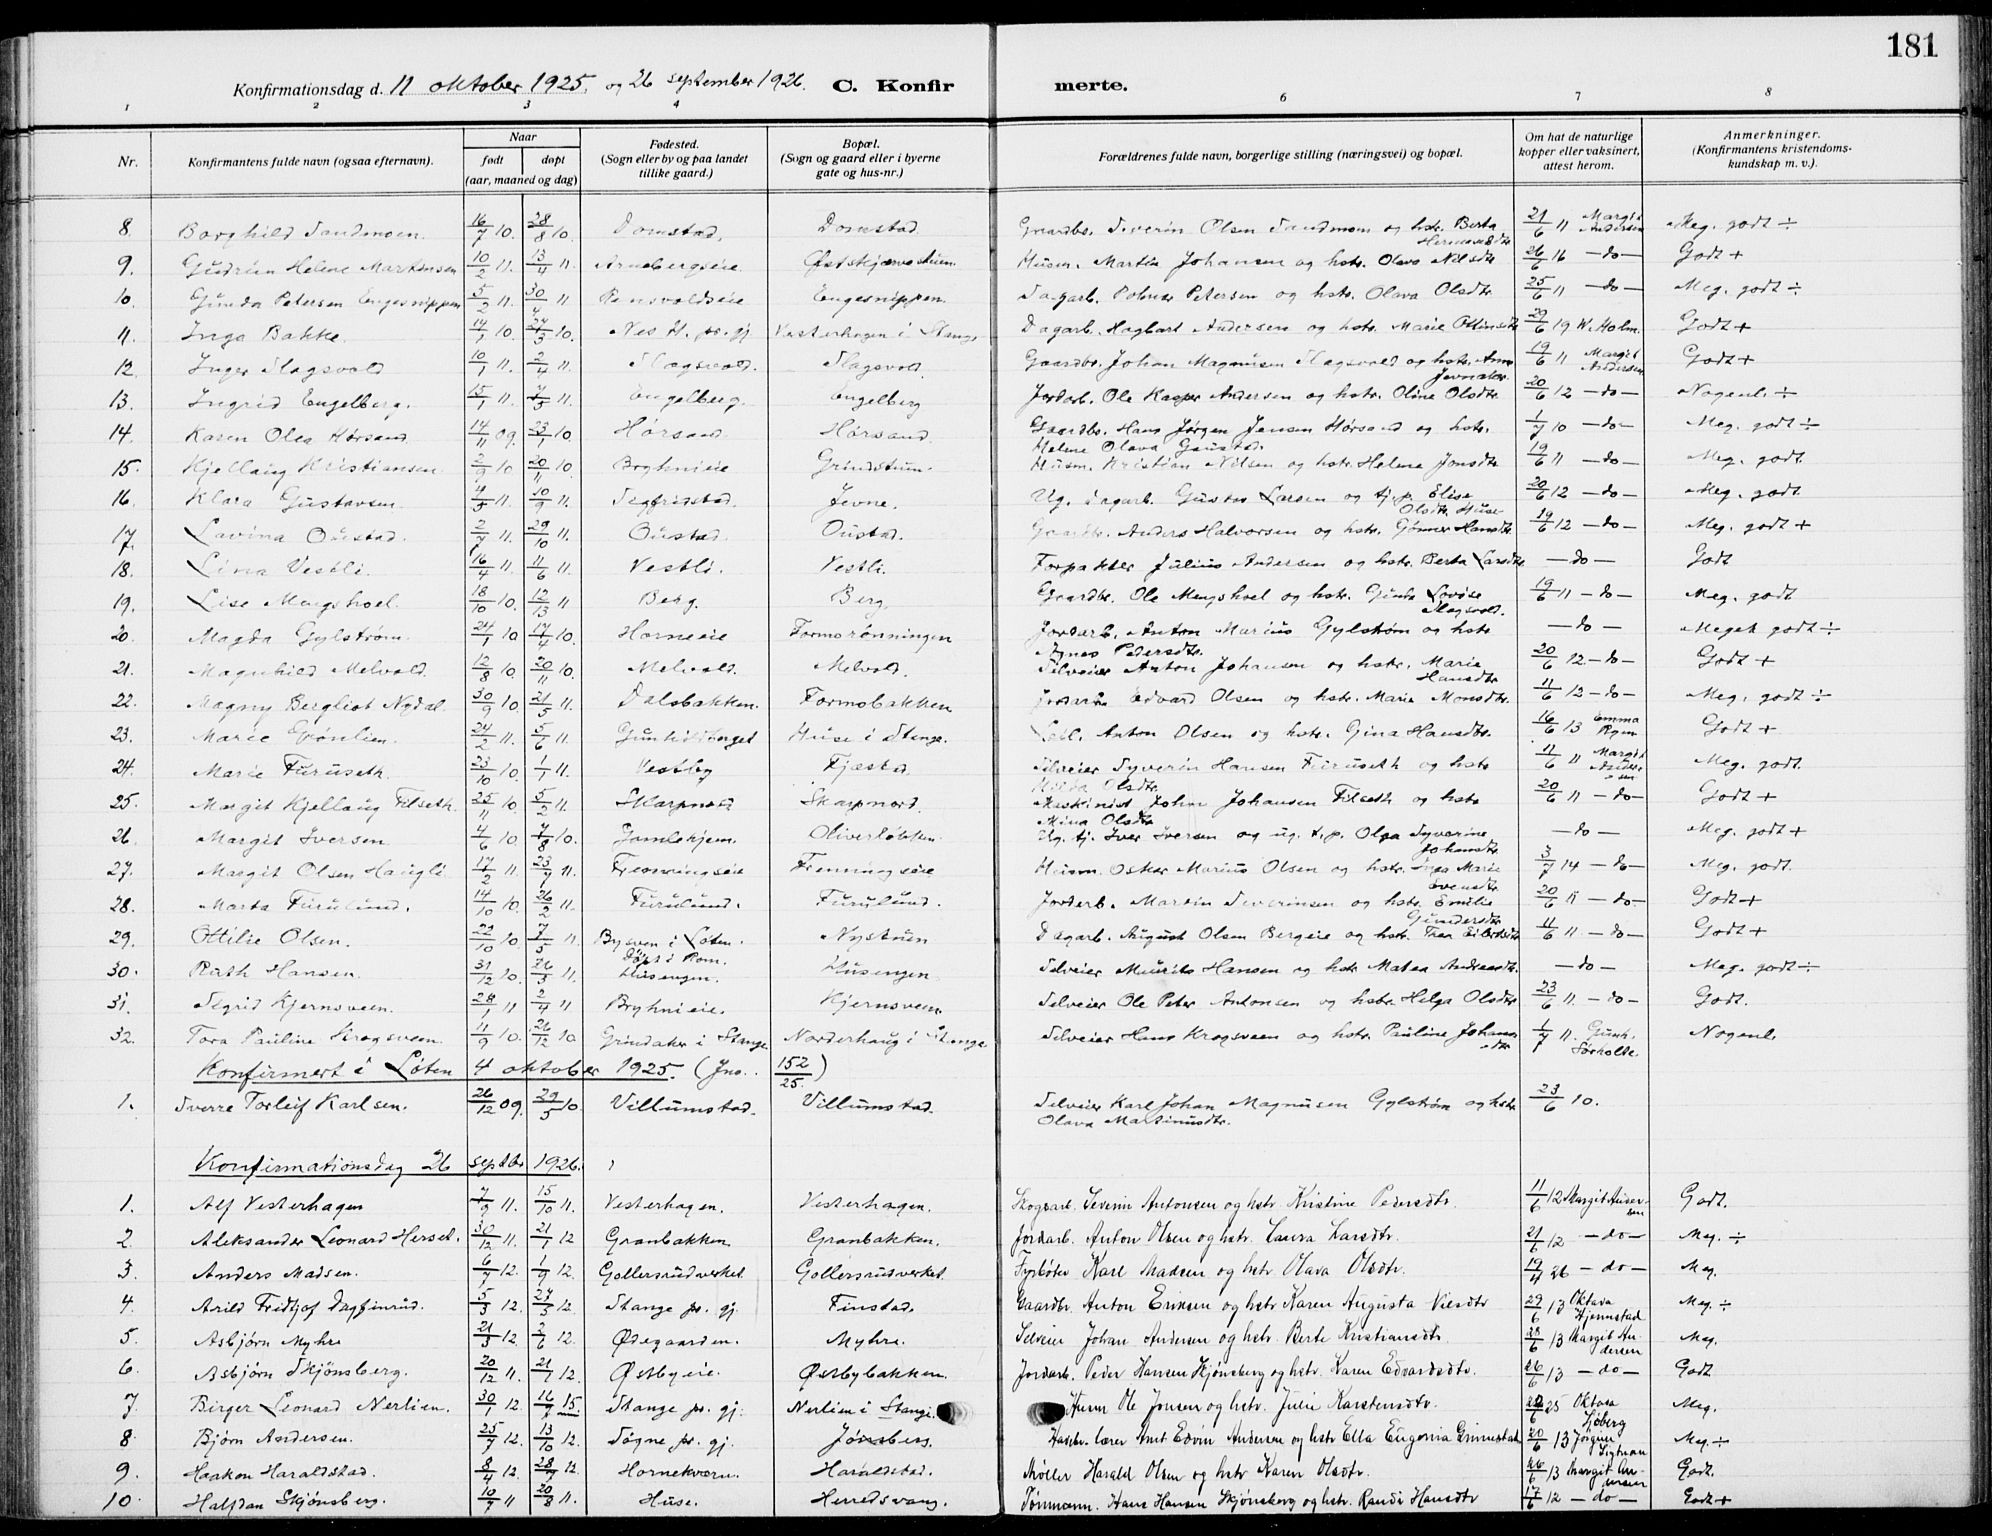 181
Konfirmationsdag d. 11 oktober 1925. og 26 september 1926. C. Konfirmerte.
1 2 3 4 6 7 8
Nr. Konfirmantens fulde navn (ogsaa efternavn). Naar født døpt (aar, maaned og dag) Fødested. (Sogn eller by og paa landet tillike gaard.) Bopæl. (Sogn og gaard eller i byerne gate og hus-nr.) Forældrenes fulde navn, borgerlige stilling (næringsvei) og bopæl. Om hat de naturlige kopper eller vaksinert, attest herom. Anmerkninger. (Konfirmantens kristendomskundskap m. v.).
8 Borghild Sandmoen. 16/7 10. 28/8 10. Domstad. Domstad. Gaardbr. Severin Olsen Sandmoen og hstr. Berta Hermansdtr 21/6 11 Margit Andersen Meg. godt ÷
9. Gudrun Helene Martinsen 10/2 11. 13/4 11. Arnebergseie Martin Johansen og hstr. Olava Nilsdtr 26/6 16 —do— Godt +
10. Gunda Petersen Engesnippen 5/2 11. 30/4 11 Rensvoldseie Engesnippen. Dagarb. Petersen og hstr. Olava Olsdtr. 25/6 11 —do— Meg. godt ÷
11. Inga Bakke. 14/1 10. 10. Nes H. pr. gj. Vesterhagen i Stange Dagarb. Hagbart Andersen og hstr. Marie 29/6 19 W. Holm. Godt +
12. Inger Slagsvold 10/1 11. 2/4 11. Slagsvold. Slagsvold. Gaardbr. Johan Magnusen Slagsvold og hstr. Anna Jevnaker. 19/6 11 Margit Andersen Godt +
13. Ingrid Engelberg. 15/1 11. 7/5 11. Engelberg. Engelberg Jordarb. Ole Kasper Andersen og hstr. Oline Olsdtr. 20/6 12 —do— Nogenl. ÷
14. Karen Olea Hørsand 14/11 09. 23/1 10. Hørsand Hørsand. Gaardbr. Hans Jørgen Jensen Hørsand og hstr. Helene Olava Gaustad. 1/7 10 —do— Meg. godt ÷
15. Kjellaug Kristiansen 2/9 10. 20/11 10. Bryhnieie Grindstun. Husm. Kristian Nilsen og hstr. Helene Jonsdtr 19/6 11 —do— Meg. godt.
16. Klara Gustavsen 4/5 11. 10/9 11. Segfridstad. Jevne. Ug. dagarb. Gustav Larsen og tj.p. Elise Olsdtr. Huse 20/6 12 —do— Meg. godt.
17. Lavina Oustad. 2/7 11. 29/10 11. Oustad. Oustad. Gaardbr. Anders Halvorsen og hstr. Gønner Hansdtr. 19/6 12 —do— Meg. godt +
18. Lina Vestli. 16/4 11. 11/6 11. Vestli. Vestli. Forpakter Julius Andersen og hstr. Berta Larsdtr —do— Godt
19. Lise Mengshoel. 18/10 10. 12/13 11 Berg. Berg. Gaardbr. Ole Mengshoel og hstr. Gunda Lovise Slagsvold. 19/6 11 —do— Meg. godt
20. Magda Gylstrøm. 24/1 10 17/4 10. Horneeie Formorønningen Jordarb. Anton Marius Gylstrøm og hstr Agnes Petersdtr. —do— Meget godt ÷
21. Magnhild Melvold. 12/8 10. 20/11 10. Melvold. Melvold. Selveier Anton Johansen og hstr. Marie Hansdtr 20/6 12 —do— Godt +
22. Magny Bergliot Nydal. 30/9 10. 21/5 11. Dalsbakken. Formobakken Edvard Olsen og hstr. Marie Monsdtr. 11/6 13 —do— Meg. godt ÷
23. Marie Grønlien. 24/2 11. 5/6 11. Gunhildberget Huse i Stange. Anton Olsen og hstr. Gina Hansdtr. 16/6 13 Emma Ryen Godt +
24. Marie Furuseth. 23/10 10. 1/1 11. Vestby Fjæstad. Selveier Syverin Hansen Furuseth og hstr Hilda Olsdtr. 11/6 11 Margit Andersen Meg. godt.
25. Margit Kjellaug Filseth. 25/11 10. 5/2 11. Skarpnord Skarpnord. Maskinist Johan Johansen Filseth og hstr Mina Olsdtr 20/6 11 —do— Godt +
26. Margit Iversen 4/6 10. 7/8 10. Gamlehjem. Oliverløkken. Ug. tj. Iver Iversen og ug. t.p. Olga Syverine Johansdtr —do— Meg. godt +
27. Margit Olsen Haugli 17/2 11. 11. Frenningseie Frenningseie Husm. Oskar Marius Olsen og hstr. Inga Marie Svensdtr. 3/7 14 —do— Meg. godt.
28. Marta Furulund. 14/10 10. 26/2 11. Furulund. Furulund. Jordarb. Martin Severinsen og hstr. Emilie Gundersdtr 20/6 11 —do— Godt +
29. Ottilie Olsen. 22/10 10. 7/5 11. Bysven i Løten. Døpt i Rom. Nystuen Dagarb. August Olsen Bergeie og hstr. Thea 11/6 11 —do— Godt +
30. Ruth Hansen. 31/12 10. 26/3 11. Husengen. Husengen. Selveier Maurits Hansen og hstr Matea Andreasdtr. —do— Meg. godt ÷
31. Sigrid Kjernsveen. 28/1 11 2/4 11 Bryhnieie. Kjernsveen. Selveier Ole Peter Antonsen og hstr. Helga Olsdtr 23/6 11. —do— Godt.
32. Tora Pauline Krogsveen. 11/9 10. 26/12 10 Grindaker i Stange. Norderhaug i Stange Selveier Hans Krogsveen og hstr. Pauline Johansdtr 1/7 11. Gunh. Sørholte. Nogenl.
Konfirmert i Løten 4 oktober 1925. (Jno. 152/25.)
1. Sverre Torleif Karlsen. 26/12 09. 29/5 10. Villumstad. Villumstad. Selveier Karl Johan Magnusen Gylstrøm og hstr Olava Martinusdtr. 23/6 10.
Konfirmationsdag 26 septbr. 1926.
1. Alf Vesterhagen 7/9 11. 15/10 11. Vesterhagen. Vesterhagen. Skogsarb. Severin Antonsen og hstr Kristine Pedersdtr 11/6 12 Margit Andersen Godt.
2. Aleksander Leonard Herset. 30/12 11. 21/1 12 Granbakken Granbakken. Jordarb. Anton Olsen og hstr. Laura Larsdtr. 21/6 12 —do— Meg. ÷
3. Anders Madsen. 6/7 12. 1/9 12. Gollersrudverket. Gollersrudverket Fyrbøter Karl Madsen og hstr. Olava Olsdtr. 19/4 26 —do— Meg.
4. Arild Fridtjof Dagfinrud. 5/3 12. 27/5 12. Stange pr. gj. Finstad. Gaardbr. Anton Eriksen og hstr Karen Augusta Nilsdtr 29/6 13 Oktava Hjemstad Meg. ÷
5. Asbjørn Myhre 21/3 12. 2/6 12. Ødegaarden. Myhre. Selveier Johan Andersen og hstr. Berte Kristiansdtr. 28/6 13 Margit Andersen Meg.
6. Asbjørn Skjønsberg. 20/12 11. 21/1 12. Østbyeie. Østbybakken. Jordarb. Peder Hansen Skjønsberg og hstr. Karen Edvardsdtr. 26/6 13 —do— Godt
7. Birger Leonard Nerlien. 30/1 12. 15. Stange pr. gj. Nerlien i Stange. Husm Ole Jonsen og hstr. Julie Karstensdtr. 25 Oktava Sjøberg Meg.
8. Bjørn Andersen. 25/7 12. 13/10 12. Søgne pr. gj. Jønsberg. lærer Arnt Edvin Andersen og hstr Ella Eugenia Grimestad 20/6 13 Jørgen Meg. ÷
9. Haakon Haraldstad. 8/4 12. 12. Hornekværn. Haraldstad. Møller Harald Olsen og hstr Karen Olsdtr. 26/6 13 Margit Andersen Godt.
10. Halfdan Skjønsberg. 10/7 11 20/8 11. Huse. Herredsvang. Tømmerm. Hans Hansen Skjønsberg og hstr. Randi Hansdtr 17/6 12 —do— Godt +